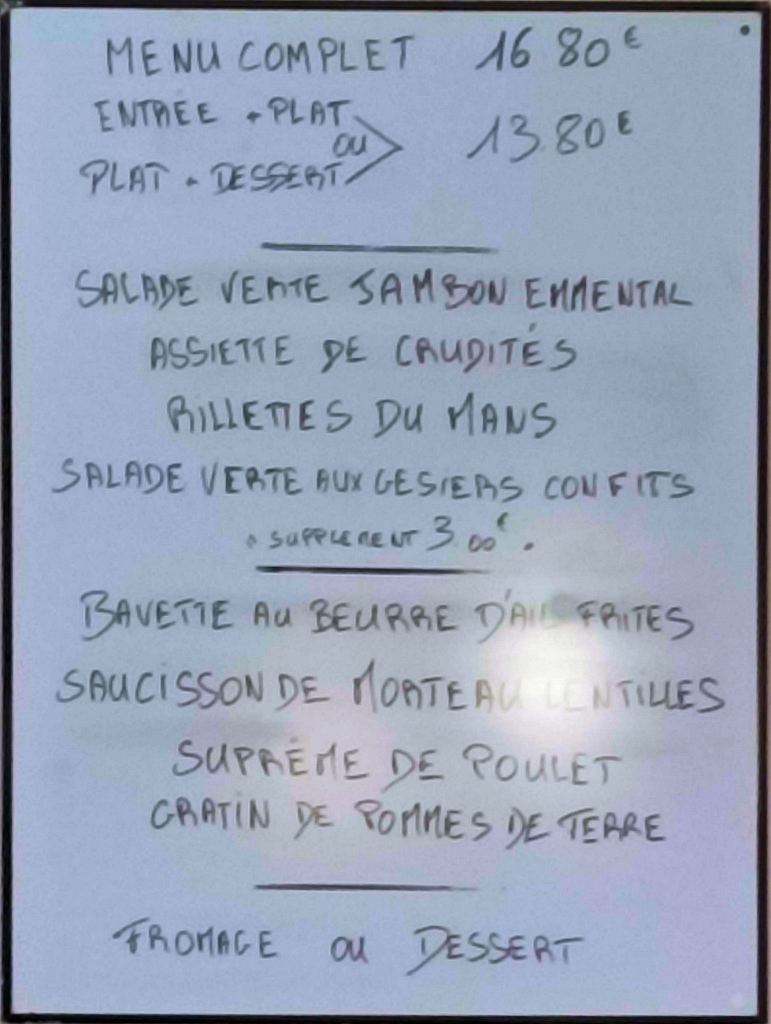 MENU COMPLET 16.80€
ENTREE + PLAT
OU 13.80€
PLAT + DESSERT
SALADE VERTE JAMBON EMMENTAL
ASSIETTE DE CRUDITÉS
RILLETTES DU MANS
SALADE VERTE AUX GESIERS CONFITS
+ SUPPLEMENT 3.00€.
BAVETTE AU BEURRE D'AIL FRITES
SAUCISSON DE MORTEAU LENTILLES
SUPRÊME DE POULET
GRATIN DE POMMES DE TERRE
FROMAGE OU DESSERT